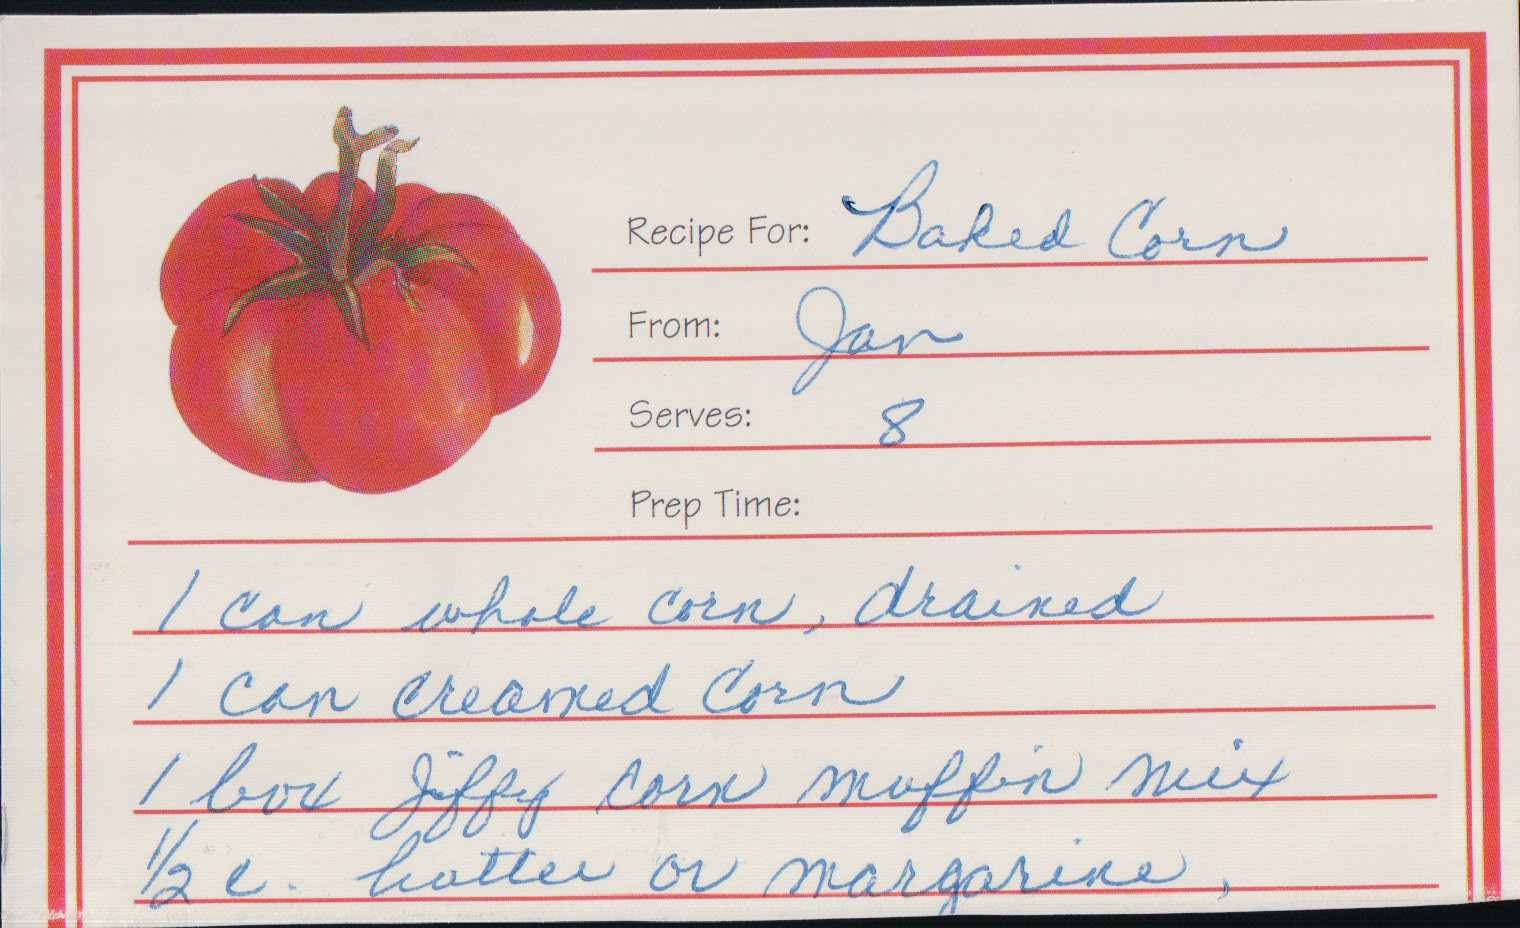 Recipe For: Baked Corn
From: Jan
Serves: 8
Prep Time:
1 can whole corn, drained
1 can creamed corn
1 box Jiffy corn muffin mix
1/2 c. butter or margarine,